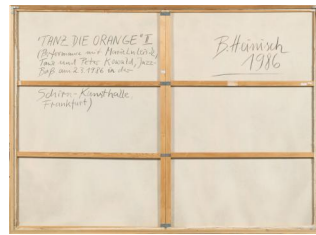 "TANZ DIE ORANGE" II
(Performance mit
Tanz und Peter Kowald, Jazz-
Baß am 2.1.1986 in der
Schirn-Kunsthalle,
Frankfurt)
B. Heinisch
1986